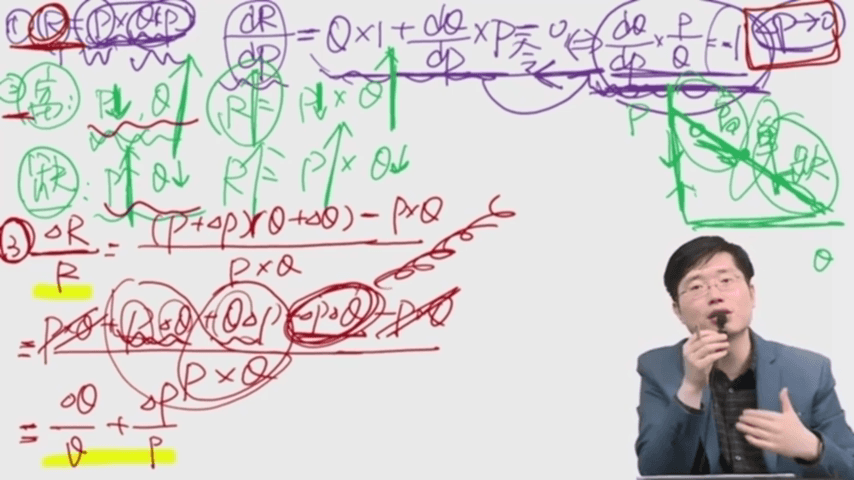 ① R = P × Q(P)
dR/dP = Q × 1 + dQ/dP × P = 0 ⇔ dQ/dP × P/Q = -1 ΔP→0
② 富: P↓ Q↑ R↑ = P↓ × Q↑
缺: P↑ Q↓ R↑ = P↑ × Q↓
P 富 单 缺
Q
③ ΔR/R = (P+ΔP)(Q+ΔQ) - P×Q / P×Q
= P×Q + PΔQ + QΔP + ΔPΔQ - P×Q / P×Q
= ΔQ/Q + ΔP/P